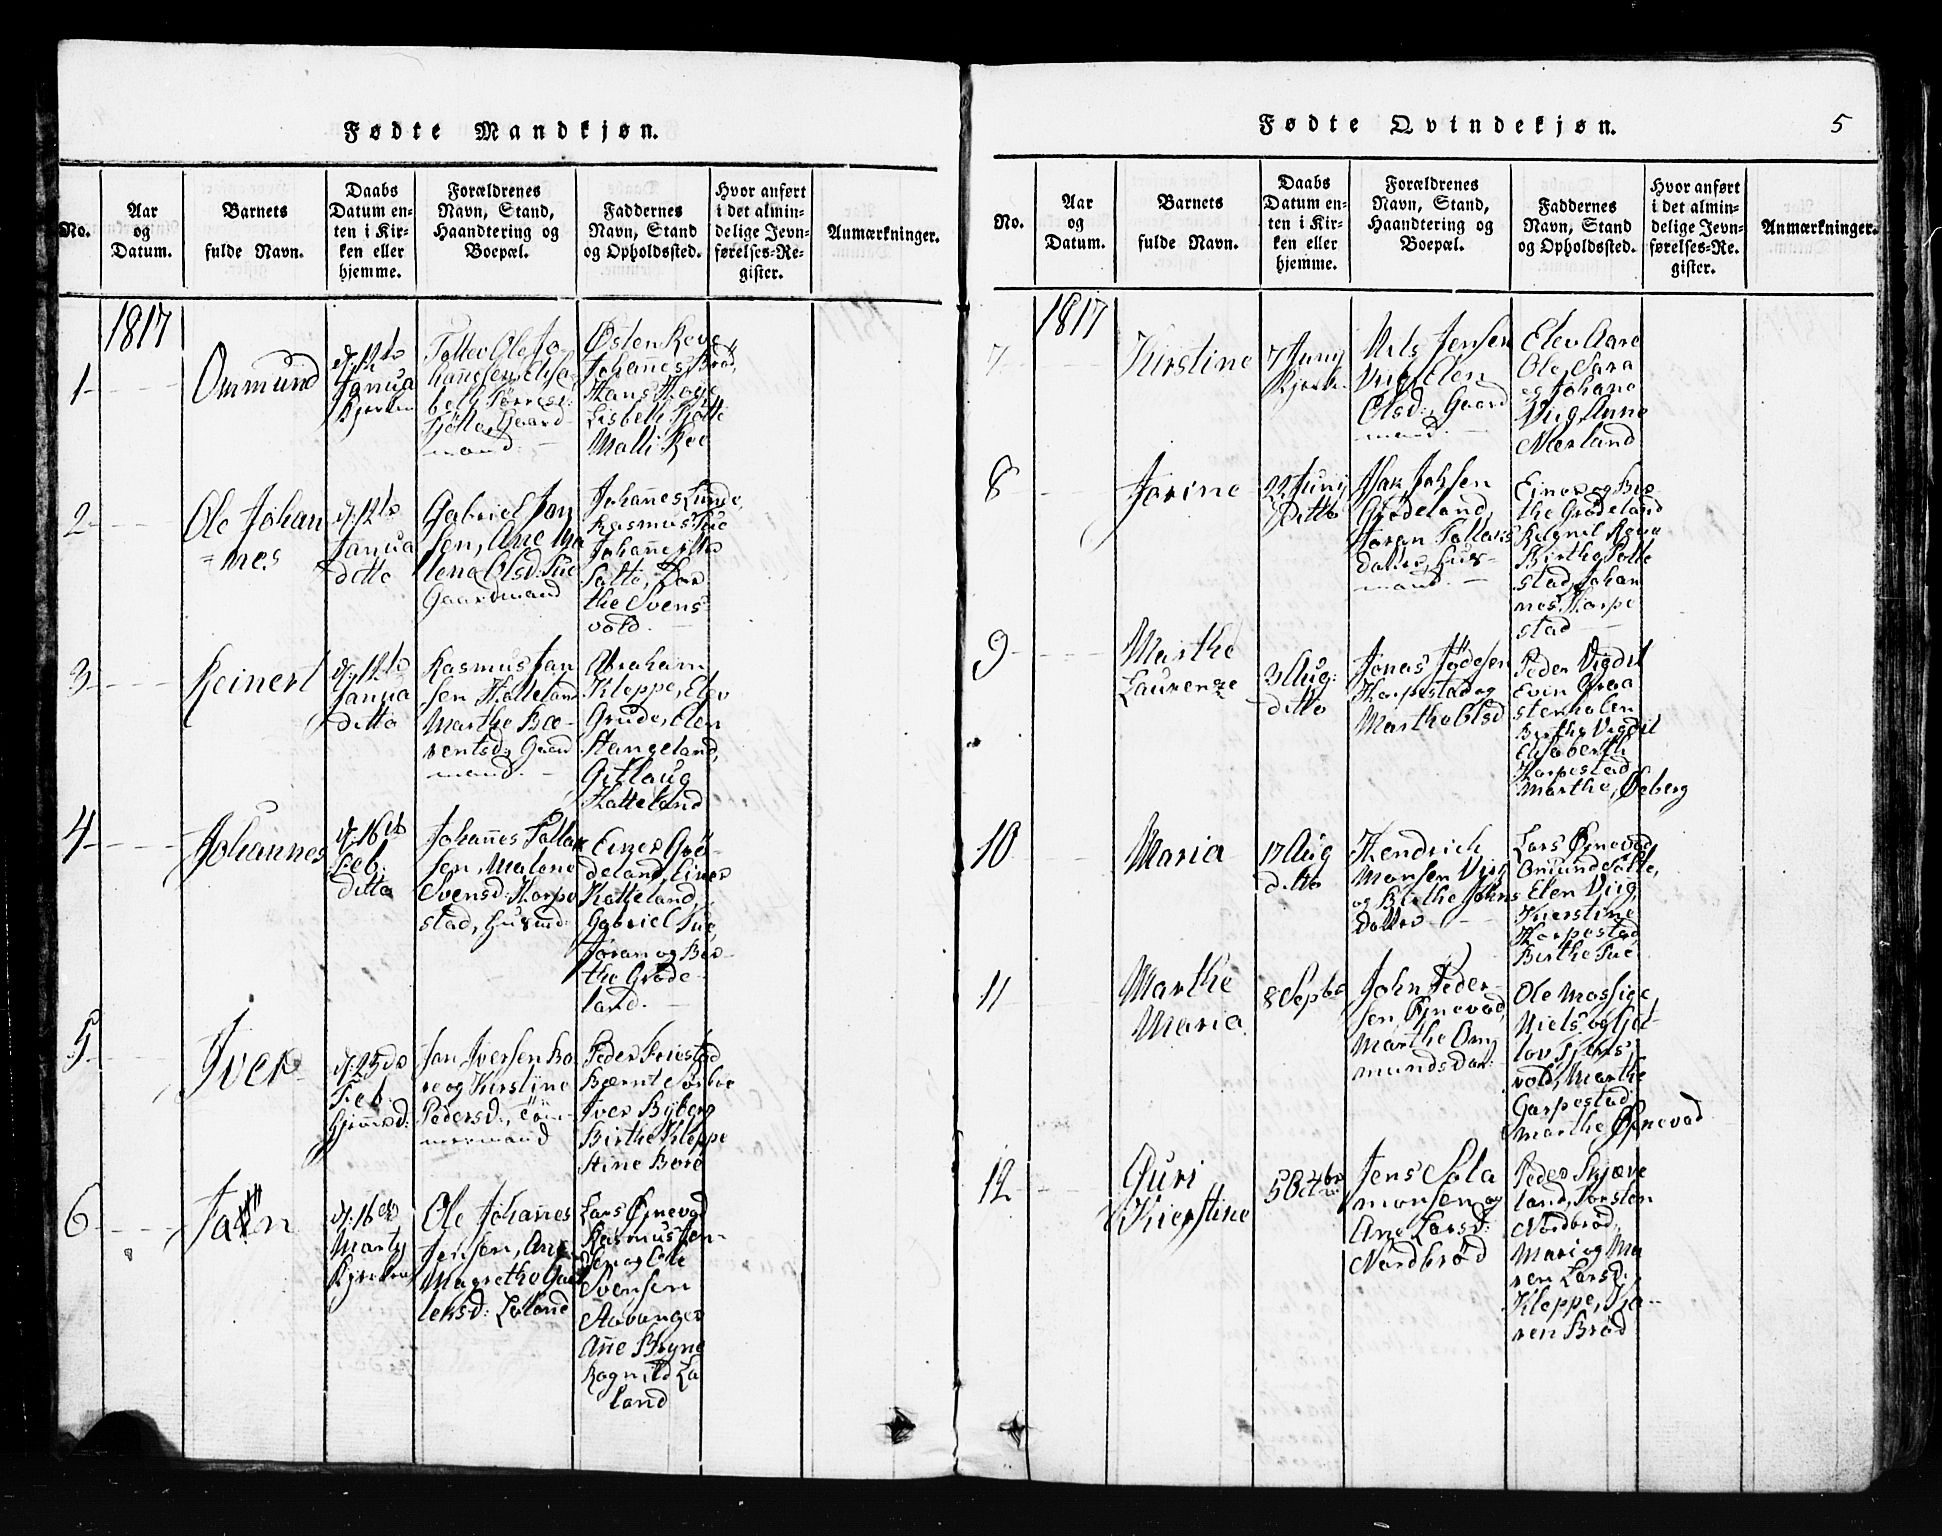 Fødte Mandkjøn.
No.
Aar
og
Datum.
Barnets
fulde Navn.
Daabs
Datum en-
ten i Kir-
ken eller
hjemme.
Forældrenes
Navn, Stand,
Haandtering og
Boepæl.
Faddernes
Navn, Stand
og Opholdssted.
Hvor anført
i det almin-
delige Jevn-
førelses-Re-
gister.
Anmærkninger.
1817
1
Ommund
d: 12te
Janua
Kjerken
Gaard
mand.
Østen Roe
Johannes Brød,
Hans Hage
Lisbeth
Malli Roe
2
Ole Johan
=nes
d: 12te
Janua
ditto
Gabriel Jan
sen, Ane Ma
lena Olsd: Tue
Gaardmand
Johannes Lunde,
Rasmus Tue
Johanne
Salte, Dor
the Svens
vold.
3
Reinert
d: 12te
Janua
ditto
Rasmus Jan
sen Hatteland
Marthe Bæ-
rentsd: Gaard
mand.
Abraham
Kleppe, Elev
Grude, Elen
Stangeland,
Gitlaug
Hatteland
4
Johannes
d: 16de
Feb.
ditto
Johannes Tollak
sen, Malene
Svensd: Harpe
stad, Husmd:
Einer Grö-
deland, Einer
Hatteland,
Gabriel Tue,
Joran og Ber-
the Gröde-
land.
5
Iver
d: 23de
Feb.
Hjemed:
Jan Iversen Bo
re og Kirstine
Pedersd:, Töm-
mermand
Peder Friestad
Bærnt Sörboe
Iver Byberg
Birthe Kleppe
Stine Bore
6
d: 16de
Marty
Kjerken
Ole Johannes
Jensen, Ane
Magrethe
leksd: Laland
Lars Ørnevad
Rasmus Jen-
sen og Ole
Svensen
Stavanger
Ane Bryne
Ragnild La
land
Fødte Qvindekjøn.
5
No.
Aar
og
Datum.
Barnets
fulde Navn.
Daabs
Datum en-
ten i Kir-
ken eller
hjemme.
Forældrenes
Navn, Stand,
Haandtering og
Boepæl.
Faddernes
Navn, Stand
og Opholdssted.
Hvor anført
i det almin-
delige Jevn-
førelses-Re-
gister.
Anmærkninger.
1817
7
Kirstine
7 Juny
Kjerk:
Nils Jensen
Viig Elen
Olsd:, Gaard
mand.
Elev Aare
Ole, Sara
og Johane
Viig Anne
Nærland
8
Jorine
22 Juny
Ditto
Isak Johsen
Grödeland,
Joran Tollaks
datter, Huus-
mand.
Einer og Ber
the Grödeland
Ragnil Rova
Birthe Tolle
stad, Johan
nes Harpe
stad
9
Marthe
Laurenze
3 Aug:
ditto
Jonas Jödesen
Harpestad og
Marthe Olsd
Peder Vigdil
Evin Graa
stenholen
Birthe Vigdil
Elisaberth
Harpestad,
Marthe, Øeberg
10
Maria
17 Aug
ditto
Hendrich
Monsen Viig
og Birthe Johns
datter
Lars Ørnevad,
Omund Salte,
Elen Viig,
Kierstine
Harpestad
Birthe Tue
11
Marthe
Maria.
8 Septbr
John Peder-
sen Ørnevad,
Marthe Om
mundsdar:
Ole Mossige,
Niels og Git-
lov Tjens
vold, Marthe
Garpestad
Marthe Ørnevad
12
Guri
Kierstine
5 Octbr
Jens Sala
monsen og
Ane Larsd:
Nordbröd
Peder Skjæve
land, Torsten
Nordbröd,
Mari og Ma
ren Larsd:
Kleppe, Ka-
ren Bröd